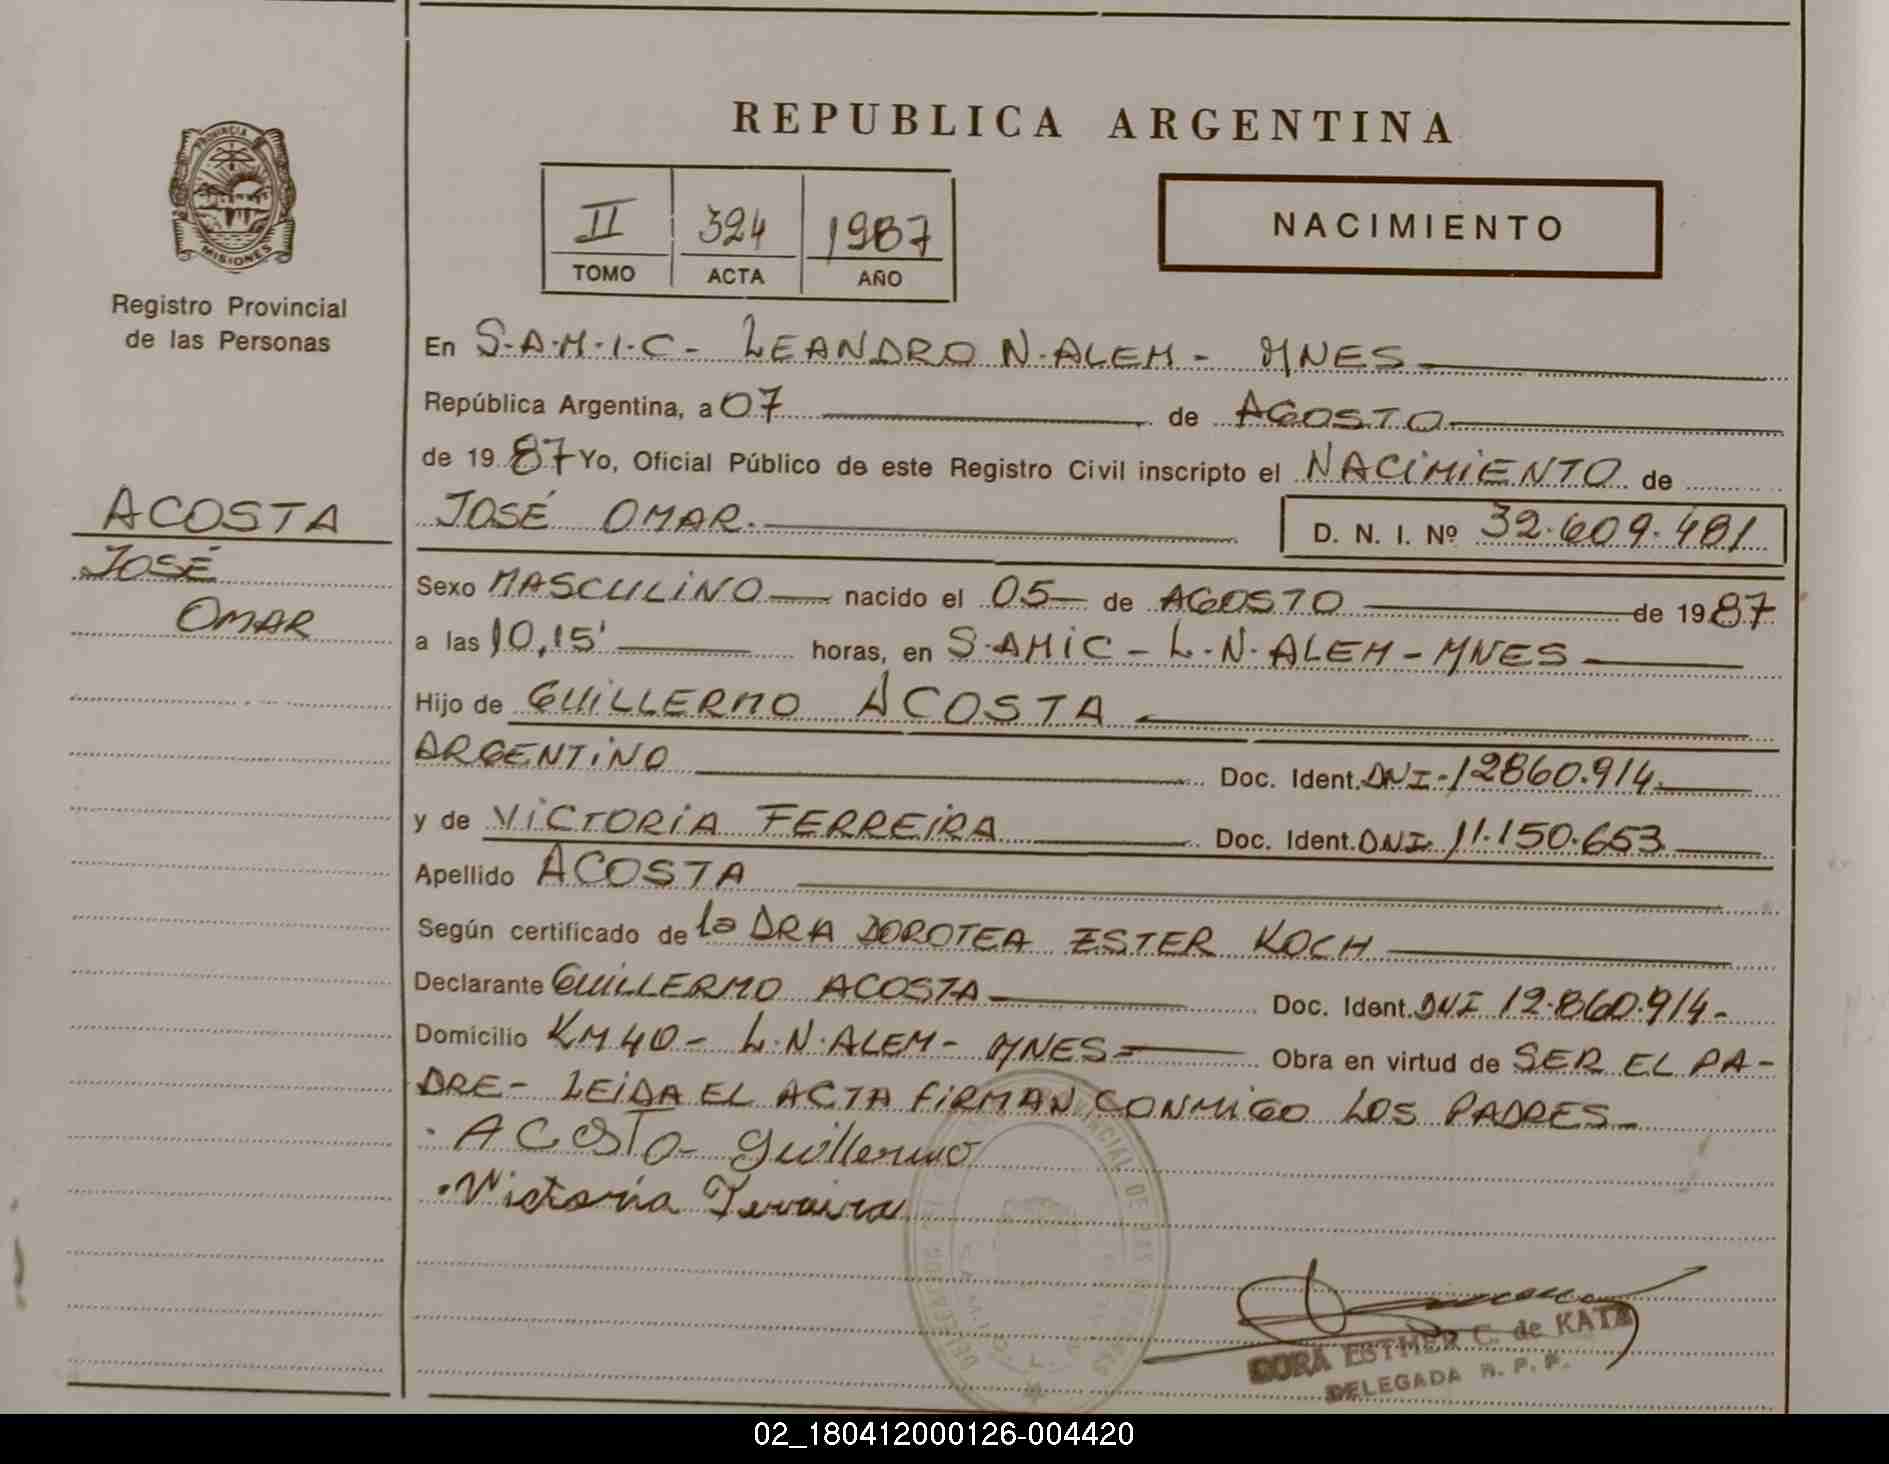 REPUBLICA ARGENTINA
PROVINCIA
MISIONES
Registro Provincial
de las Personas
II 324 1987
TOMO ACTA AÑO
NACIMIENTO
En S.A.M.I.C- LEANDRO N.ALEM- MNES
República Argentina, a 07 de AGOSTO
de 19 87 Yo, Oficial Público de este Registro Civil inscripto el NACIMIENTO de
ACOSTA
JOSÉ
OMAR
JOSÉ OMAR. D. N. I. Nº 32.609.481
Sexo MASCULINO nacido el 05 de AGOSTO de 19 87
a las 10,15' horas, en S.AMIC - L.N.ALEM-MNES
Hijo de GUILLERMO ACOSTA
ARGENTINO Doc. Ident. DNI-12860.914.
y de VICTORIA FERREIRA Doc. Ident. DNI. 11.150.653
Apellido ACOSTA
Según certificado de la DRA DOROTEA ESTER KOCH
Declarante GUILLERMO ACOSTA Doc. Ident. DNI 12.860.914-
Domicilio KM 40- L.N.ALEM- MNES Obra en virtud de SER EL PA-
DRE- LEIDA EL ACTA FIRMAN CONMIGO LOS PADRES-
ACOSTA Guillermo
Victoria Ferreira
DORA ESTHER C. de KATZ
DELEGADA R. P. P.
02_180412000126-004420